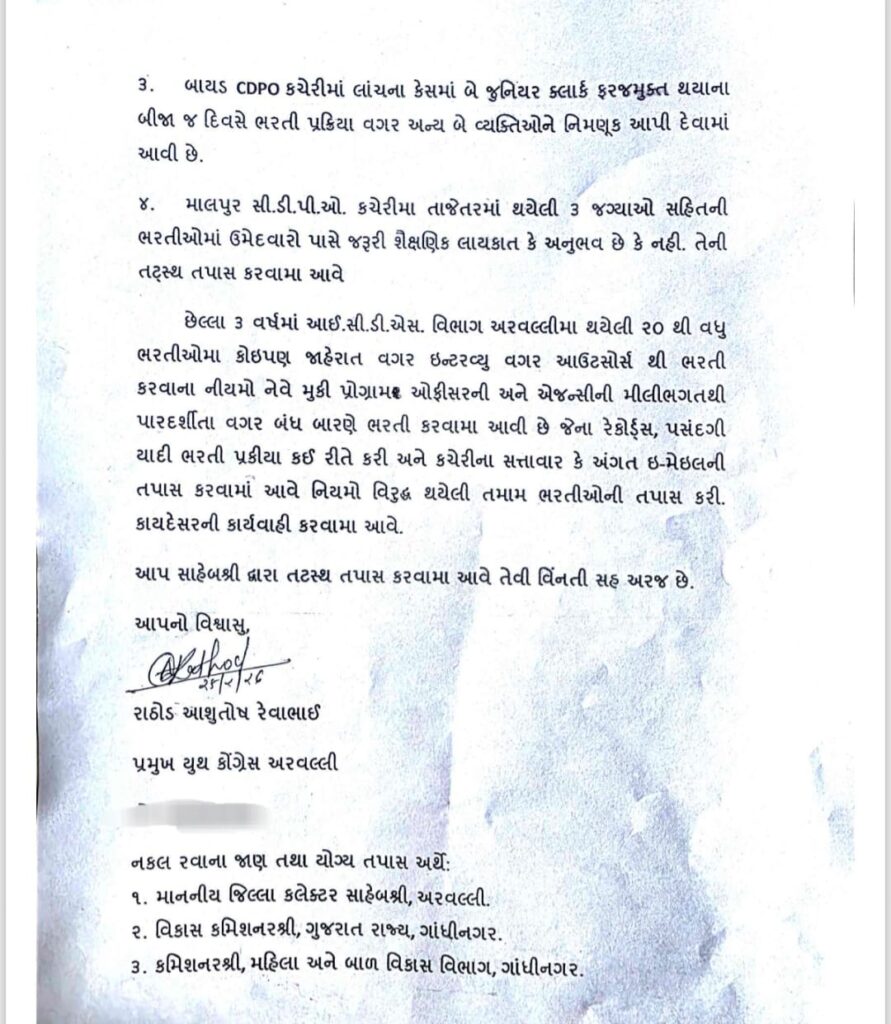 ૩. બાયડ CDPO કચેરીમાં લાંચના કેસમાં બે જુનિયર ક્લાર્ક ફરજમુક્ત થયાના
બીજા જ દિવસે ભરતી પ્રક્રિયા વગર અન્ય બે વ્યક્તિઓને નિમણૂક આપી દેવામાં
આવી છે.
૪. માલપુર સી.ડી.પી.ઓ. કચેરીમા તાજેતરમાં થયેલી ૩ જગ્યાઓ સહિતની
ભરતીઓમાં ઉમેદવારો પાસે જરૂરી શૈક્ષણિક લાયકાત કે અનુભવ છે કે નહી. તેની
તટ્સ્થ તપાસ કરવામા આવે
છેલ્લા ૩ વર્ષમાં આઈ.સી.ડી.એસ. વિભાગ અરવલ્લીમા થયેલી ૨૦ થી વધુ
ભરતીઓમા કોઇપણ જાહેરાત વગર ઇન્ટરવ્યુ વગર આઉટસોર્સ થી ભરતી
કરવાના નીયમો નેવે મુકી પ્રોગ્રામર ઓફીસરની અને એજન્સીની મીલીભગતથી
પારદર્શીતા વગર બંધ બારણે ભરતી કરવામા આવી છે જેના રેકોર્ડ્સ, પસંદગી
યાદી ભરતી પ્રકીયા કઈ રીતે કરી અને કચેરીના સત્તાવાર કે અંગત ઇ-મેઇલની
તપાસ કરવામાં આવે નિયમો વિરુદ્ધ થયેલી તમામ ભરતીઓની તપાસ કરી.
કાયદેસરની કાર્યવાહી કરવામા આવે.
આપ સાહેબશ્રી દ્વારા તટસ્થ તપાસ કરવામા આવે તેવી વિંનતી સહ અરજ છે.
આપનો વિશ્વાસુ,
રાઠોડ આશુતોષ રેવાભાઈ
પ્રમુખ યુથ કોંગ્રેસ અરવલ્લી
નકલ રવાના જાણ તથા યોગ્ય તપાસ અર્થે:
૧. માનનીય જિલ્લા કલેક્ટર સાહેબશ્રી, અરવલ્લી.
૨. વિકાસ કમિશનરશ્રી, ગુજરાત રાજ્ય, ગાંધીનગર.
૩. કમિશનરશ્રી, મહિલા અને બાળ વિકાસ વિભાગ, ગાંધીનગર.